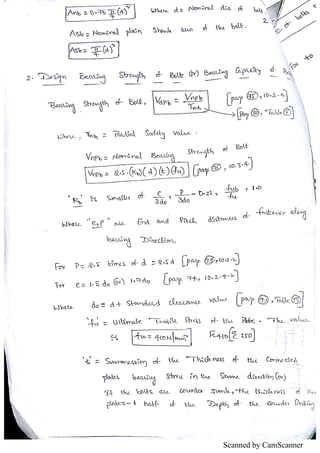 Anb = 0.78 π/4 (d)² Where d = Nominal dia of bolt
2
Asb = Nominal plain Shank area of the bolt.
Asb = π/4 (d)²
2. Design Bearing Strength of Bolt (or) Bearing Capacity of
Bearing Strength of Bolt, Vdpb = Vnpb/γmb [page 75, 10.3.4]
→ [page 30, Table 5]
Where, γmb = Partial Safety value.
Vnpb = Nominal Bearing Strength of Bolt
Vnpb = 2.5 (Kb)(d)(t)(fu) [page 75, 10.3.4]
'Kb' is smaller of e/3do, p/3do - 0.25, fub/fu, 1.0
Where "e,p" are End and Pitch distances of fastener along
bearing Direction.
For P = 2.5 times of d = 2.5d [page 73, 10.2.2]
For e = 1.5 do (or) 1.7do [page 74, 10.2.4.2]
Where do = d + Standard clearance value [page 73, Table 19]
'fu' = Ultimate Tensile Stress of the Plate. The value
is fu = 410N/mm² Fe410 [E 250]
't' = Summation of the Thickness of the connected
plates bearing stress in the Same direction (or)
If the bolts are counter sunk, the thickness of the
plates - half of the Depth of the counter Sinking
Scanned by CamScanner